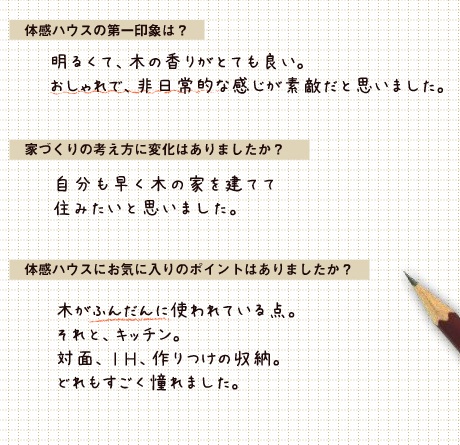 体感ハウスの第一印象は？
明るくて、木の香りがとても良い。
おしゃれで、非日常的な感じが素敵だと思いました。
家づくりの考え方に変化はありましたか？
自分も早く木の家を建てて
住みたいと思いました。
体感ハウスにお気に入りのポイントはありましたか？
木がふんだんに使われている点。
それと、キッチン。
対面、IH、作りつけの収納。
どれもすごく憧れました。